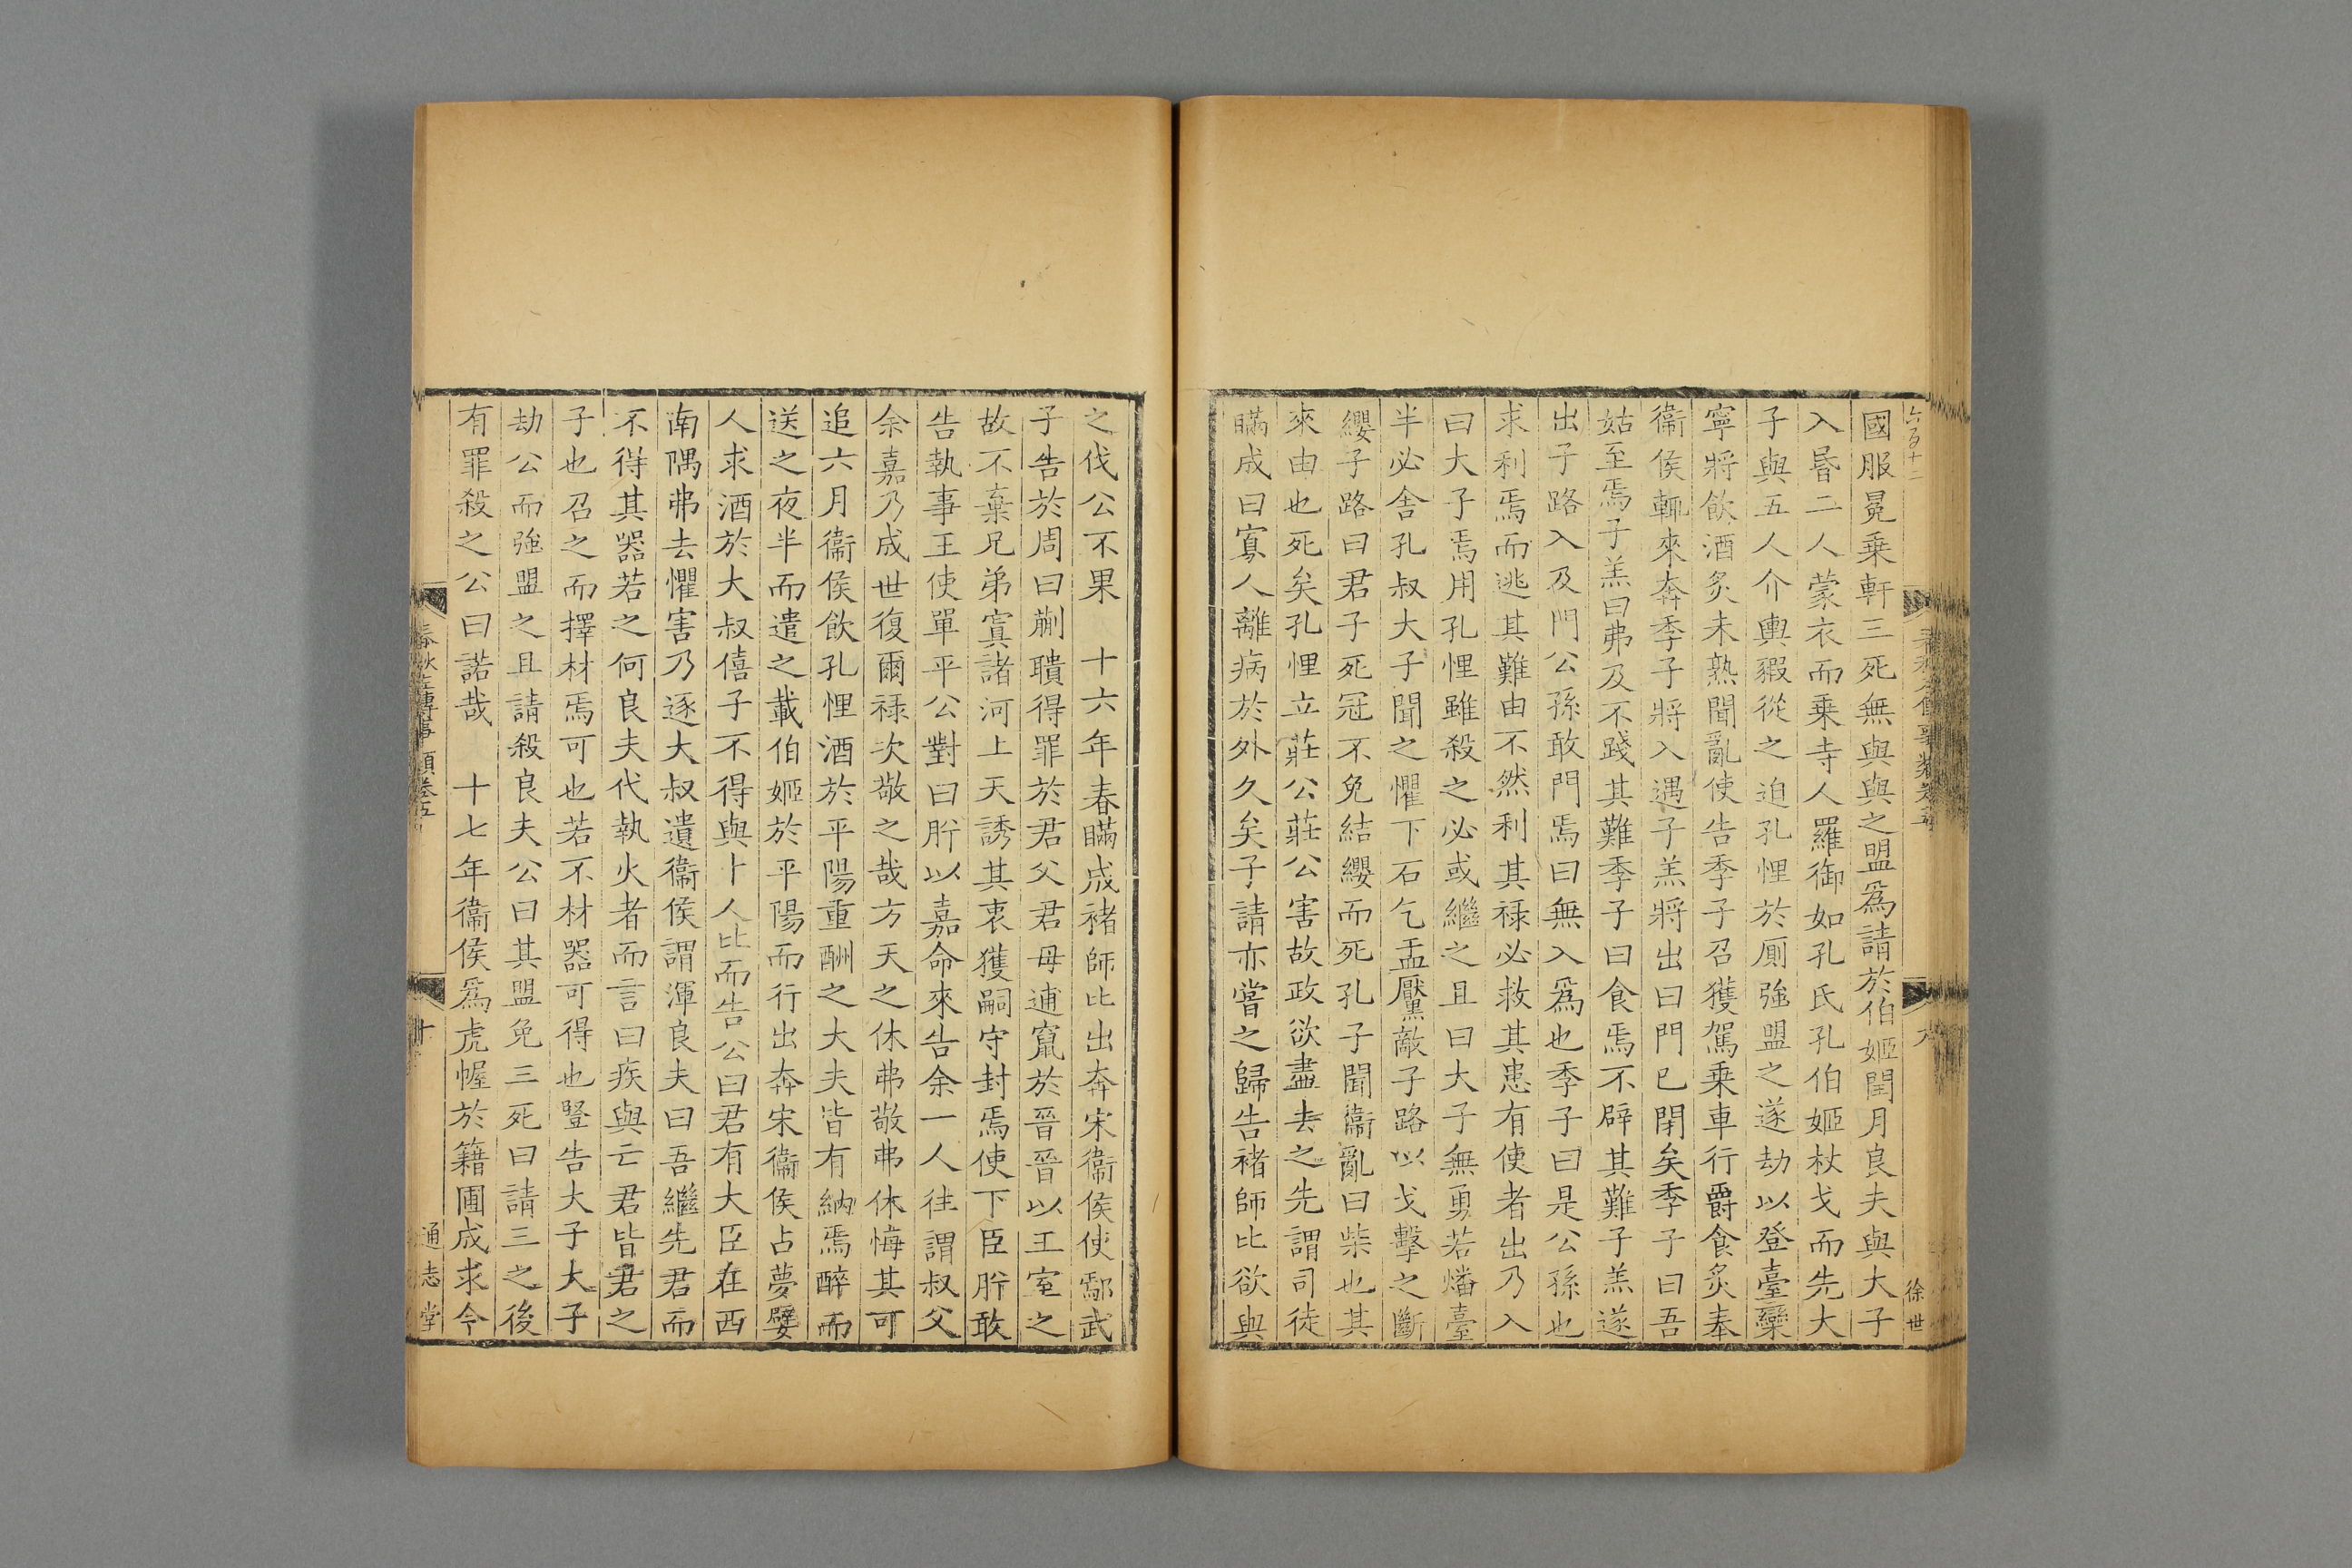 國服冕乗軒三死無與與之盟爲請於伯姬閏月良夫與大子
入昬二人蒙衣而乗寺人羅御如孔氏孔伯姬杖戈而先大
子與五人介輿豭從之迫孔悝於厠強盟之遂劫以登臺欒
寧將飲酒炙未熟聞亂使告季子召獲駕乗車行爵食炙奉
衞侯輒來奔季子將入遇子羔將出曰門已閉矣季子曰吾
姑至焉子羔曰弗及不踐其難季子曰食焉不辟其難子羔遂
出子路入及門公孫敢門焉曰無入爲也季子曰是公孫也
求利焉而逃其難由不然利其禄必救其患有使者出乃入
曰大子焉用孔悝雖殺之必或繼之且曰大子無勇若燔臺
半必舍孔叔大子聞之懼下石乞盂黶敵子路以戈擊之斷
纓子路曰君子死冠不免結纓而死孔子聞衞亂曰柴也其
來由也死矣孔悝立莊公莊公害故政欲盡去之先謂司徒
瞞成曰寡人離病於外久矣子請亦嘗之歸告褚師比欲與
徐世
之伐公不果　十六年春瞞成褚師比出奔宋衞侯使鄢武
子告於周曰蒯聵得罪於君父君母逋竄於晉晉以王室之
故不棄兄弟寘諸河上天誘其衷獲嗣守封焉使下臣肸敢
告執事王使單平公對曰肸以嘉命來告余一人往謂叔父
余嘉乃成世復爾禄次敬之哉方天之休弗敬弗休悔其可
追六月衞侯飲孔悝酒於平陽重酬之大夫皆有納焉醉而
送之夜半而遣之載伯姬於平陽而行出奔宋衞侯占夢嬖
人求酒於大叔僖子不得與卜人比而告公曰君有大臣在西
南隅弗去懼害乃逐大叔遺衞侯謂渾良夫曰吾繼先君而
不得其器若之何良夫代執火者而言曰疾與亡君皆君之
子也召之而擇材焉可也若不材器可得也豎告大子大子
劫公而強盟之且請殺良夫公曰其盟免三死曰請三之後
有罪殺之公曰諾哉　十七年衞侯爲虎幄於籍圃成求令
春秋左傳事類卷五
十
通志堂